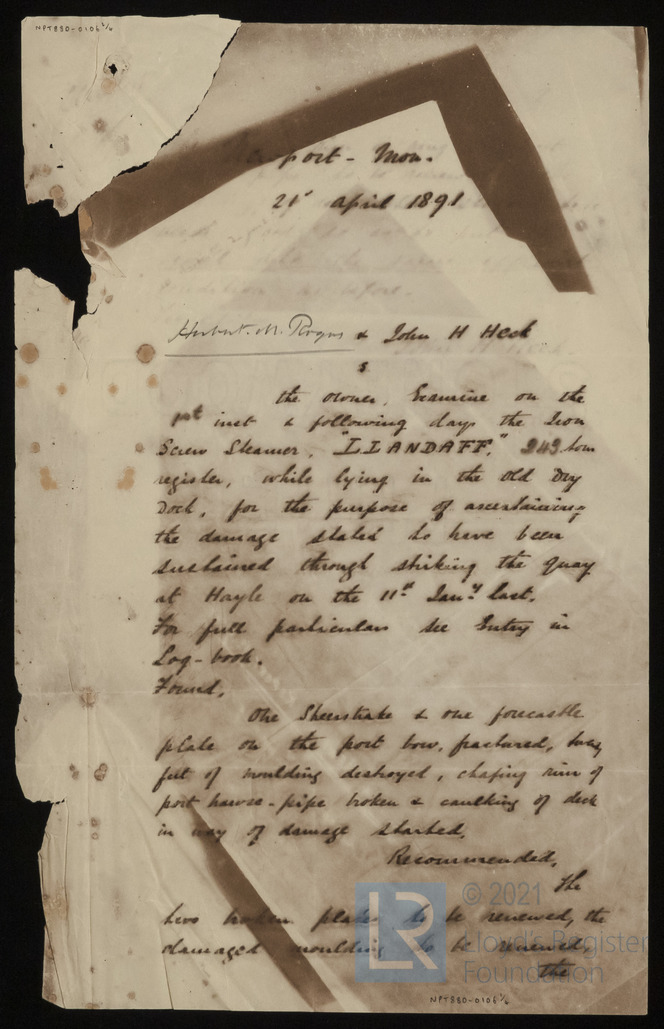 NPT880-0106 1/6
Newport - Mon.
21st April 1891
Herbert. M. Rogers & John H Heck
s
the owner, Examine on the
1st inst & following days the Iron
Screw Steamer, "LLANDAFF," 243 tons
register, while lying in the Old Dry
Dock, for the purpose of ascertaining
the damage stated to have been
sustained through striking the quay
at Hayle on the 11th Jany last.
For full particulars see Entry in
Log-book.
Found,
One Sheerstrake & one forecastle
plate on the port bow, fractured,
feet of moulding destroyed, chafing rim of
port hawse-pipe broken & caulking of deck
in way of damage started.
Recommended,
The
two broken plates to be renewed, the
damaged moulding to be renewed,
the
© 2021
LR
Lloyd's Register
Foundation
NPT880-0106 1/6